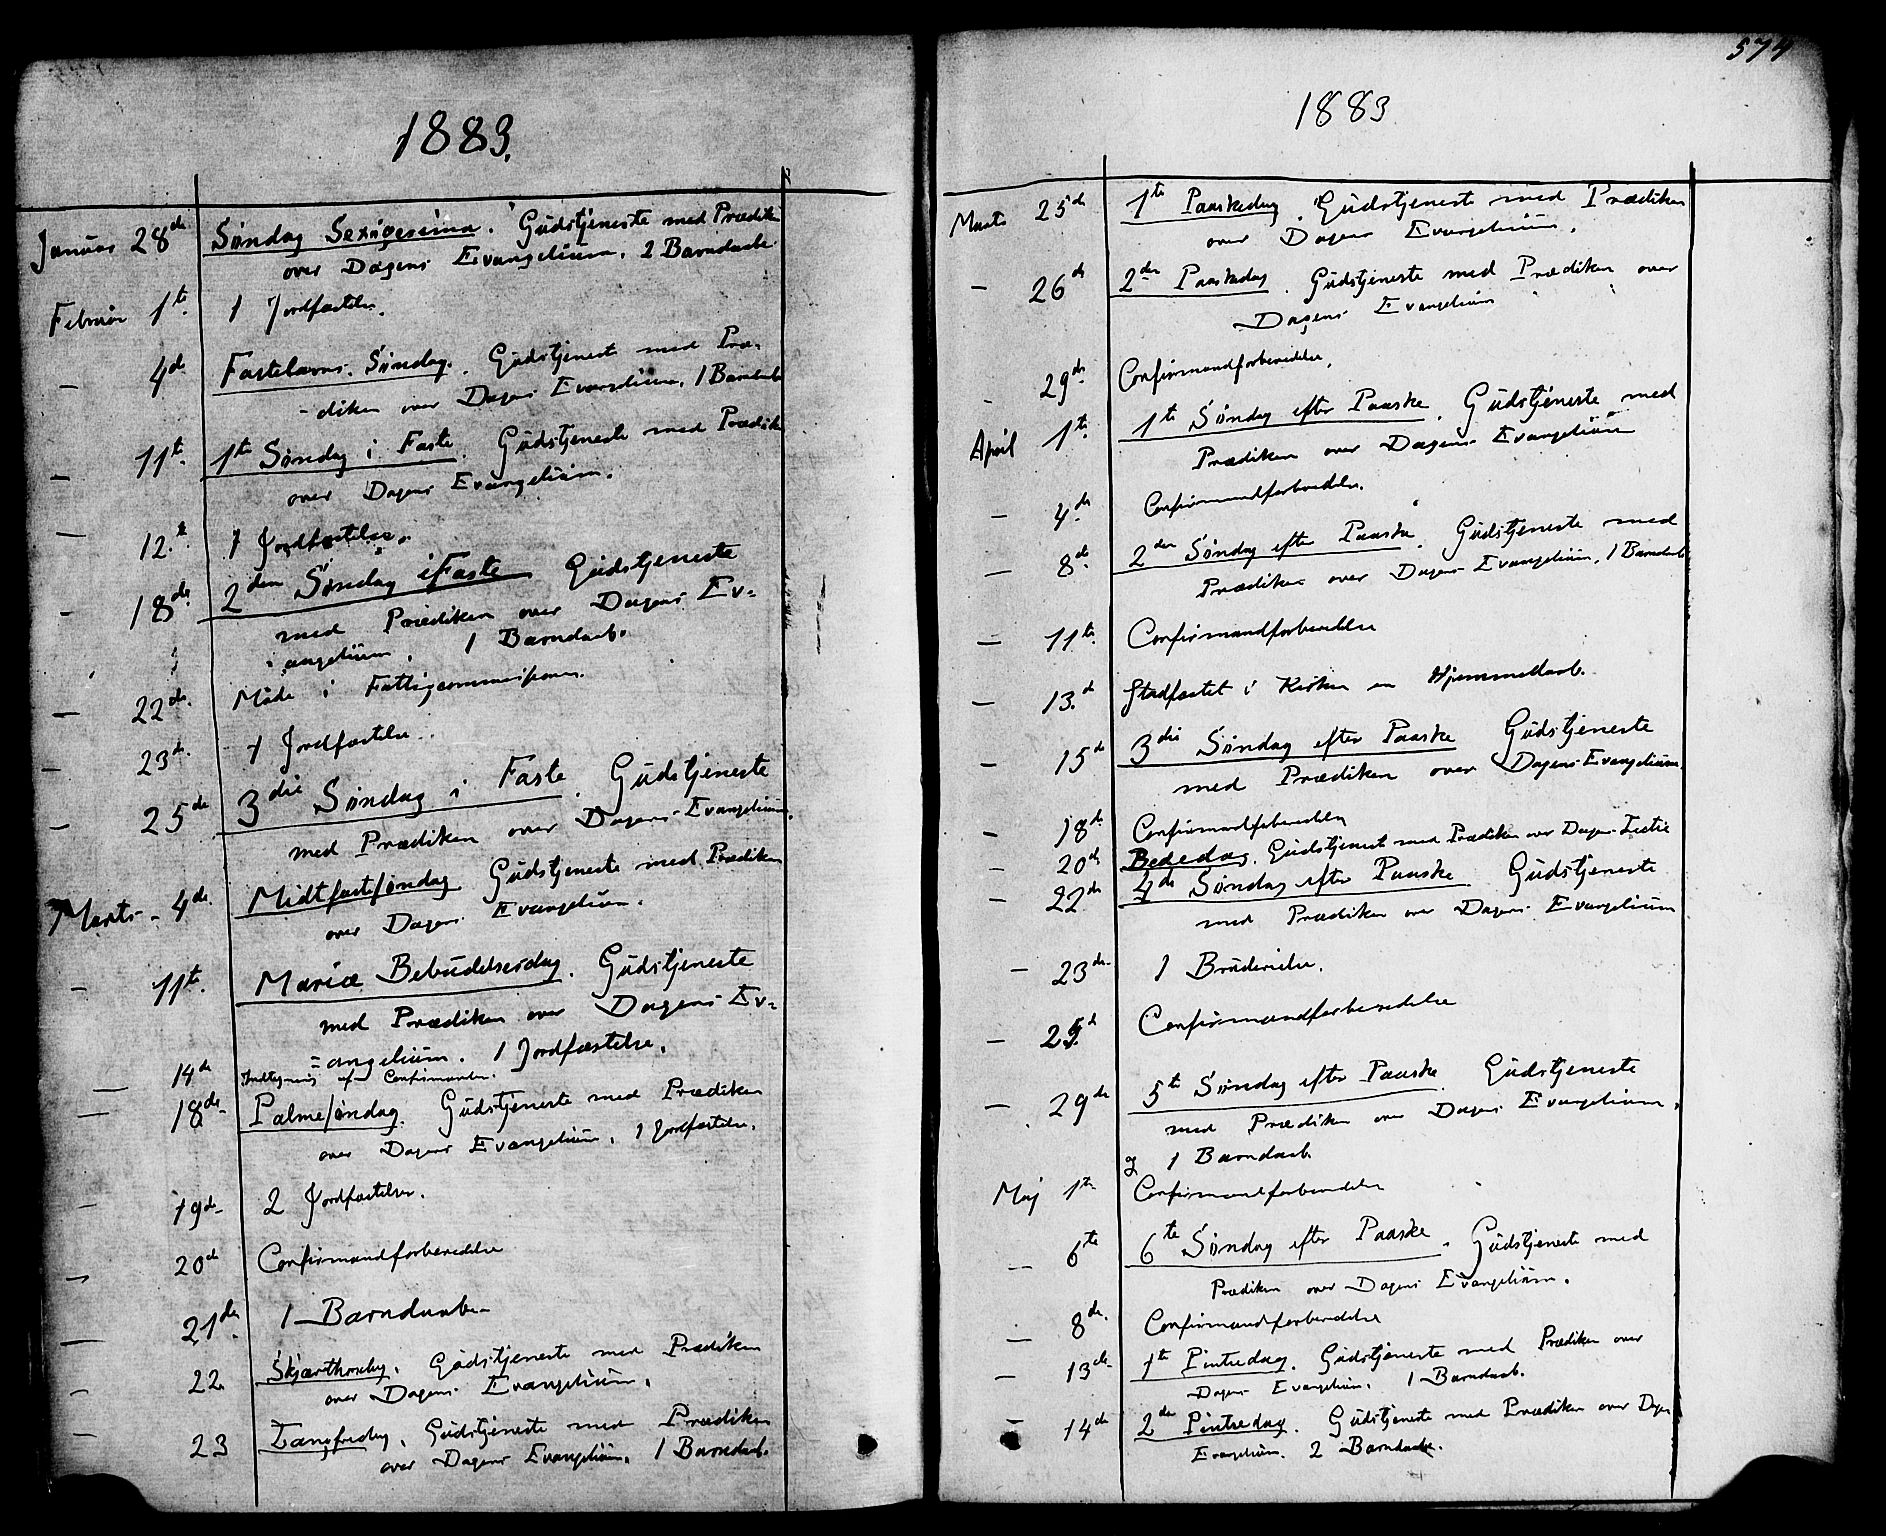 1883.
Januar 28de Søndag Sexagesima. Gudstjeneste med Prædiken
over Dagens Evangelium. 2 Barndaab
Februar 1te. 1 Jordfæstelse.
— 4de Fastelavns Søndag. Gudstjeneste med Præ-
-diken over Dagens Evangelium. 1 Barndaab
— 11te. 1te Søndag i Faste. Gudstjeneste med Prædiken
over Dagens Evangelium.
— 12te. 1 Jordfæstelse.
— 18de. 2den Søndag i Faste Gudstjeneste
med Prædiken over Dagens Ev=
=angelium. 1 Barndaab.
— 22de. Møde i Fattigcommissionen.
— 23de. 1 Jordfæstelse.
— 25de 3die Søndag i Faste. Gudstjeneste
med Prædiken over Dagens Evangelium.
Marts - 4de. Midtfastsøndag Gudstjeneste med Prædiken
over Dagens Evangelium.
— 11te. Mariæ Bebudelsesdag. Gudstjeneste
med Prædiken over Dagens Ev=
=angelium. 1 Jordfæstelse.
— 14de Indtegning af Confirmanter.
— 18de- Palmesøndag. Gudstjeneste med Prædiken
over Dagens Evangelium. 1 Jordfæstelse.
— 19de- 2 Jordfæstelser.
— 20de Confirmandforberedelse
— 21de. 1 Barndaab-
— 22. Skjærthorsdag. Gudstjeneste med Prædiken
over Dagens Evangelium.
— 23 Langfredag. Gudstjeneste med Prædiken
over Dagens Evangelium. 1 Barndaab.
574
1883
Marts 25de 1te Paaskedag. Gudstjeneste med Prædiken
over Dagens Evangelium.
— 26de 2den Paaskedag. Gudstjeneste med Prædiken over
Dagens Evangelium
- 29de. Confirmandforberedelse.
April 1te. 1te Søndag efter Paaske. Gudstjeneste med
Prædiken over Dagens Evangelium
— 4de. Confirmandforberedelse.
— 8de. 2den Søndag efter Paaske. Gudstjeneste med
Prædiken over Dagens Evangelium. 1 Barndaab
— 11te. Confirmandforberedelse
— 13de Stadfæstet i Kirken en Hjemmedaab.
— 15de 3die Søndag efter Paaske Gudstjeneste
med Prædiken over Dagens Evangelium.
— 18de. Confirmandforberedelse
— 20de Bededag. Gudstjeneste med Prædiken over Dagens Lectie
— 22de 4de Søndag efter Paaske Gudstjeneste
med Prædiken over Dagens Evangelium
— 23de- 1 Brudevielse.
— 25de Confirmandforberedelse
— 29de 5te Søndag efter Paaske. Gudstjeneste
med Prædiken over Dagens Evangelium.
1 Barndaab.
Maj 1te Confirmandforberedelse
— 6te 6te Søndag efter Paaske. Gudstjeneste med
Prædiken over Dagens Evangelium.
— 8de. Confirmandforberedelse
— 13de- 1te Pintsedag. Gudstjeneste med Prædiken over
Dagens Evangelium. 1 Barndaab.
— 14de 2den Pintsedag. Gudstjeneste med Prædiken over Dagens
Evangelium. 2 Barndaab.